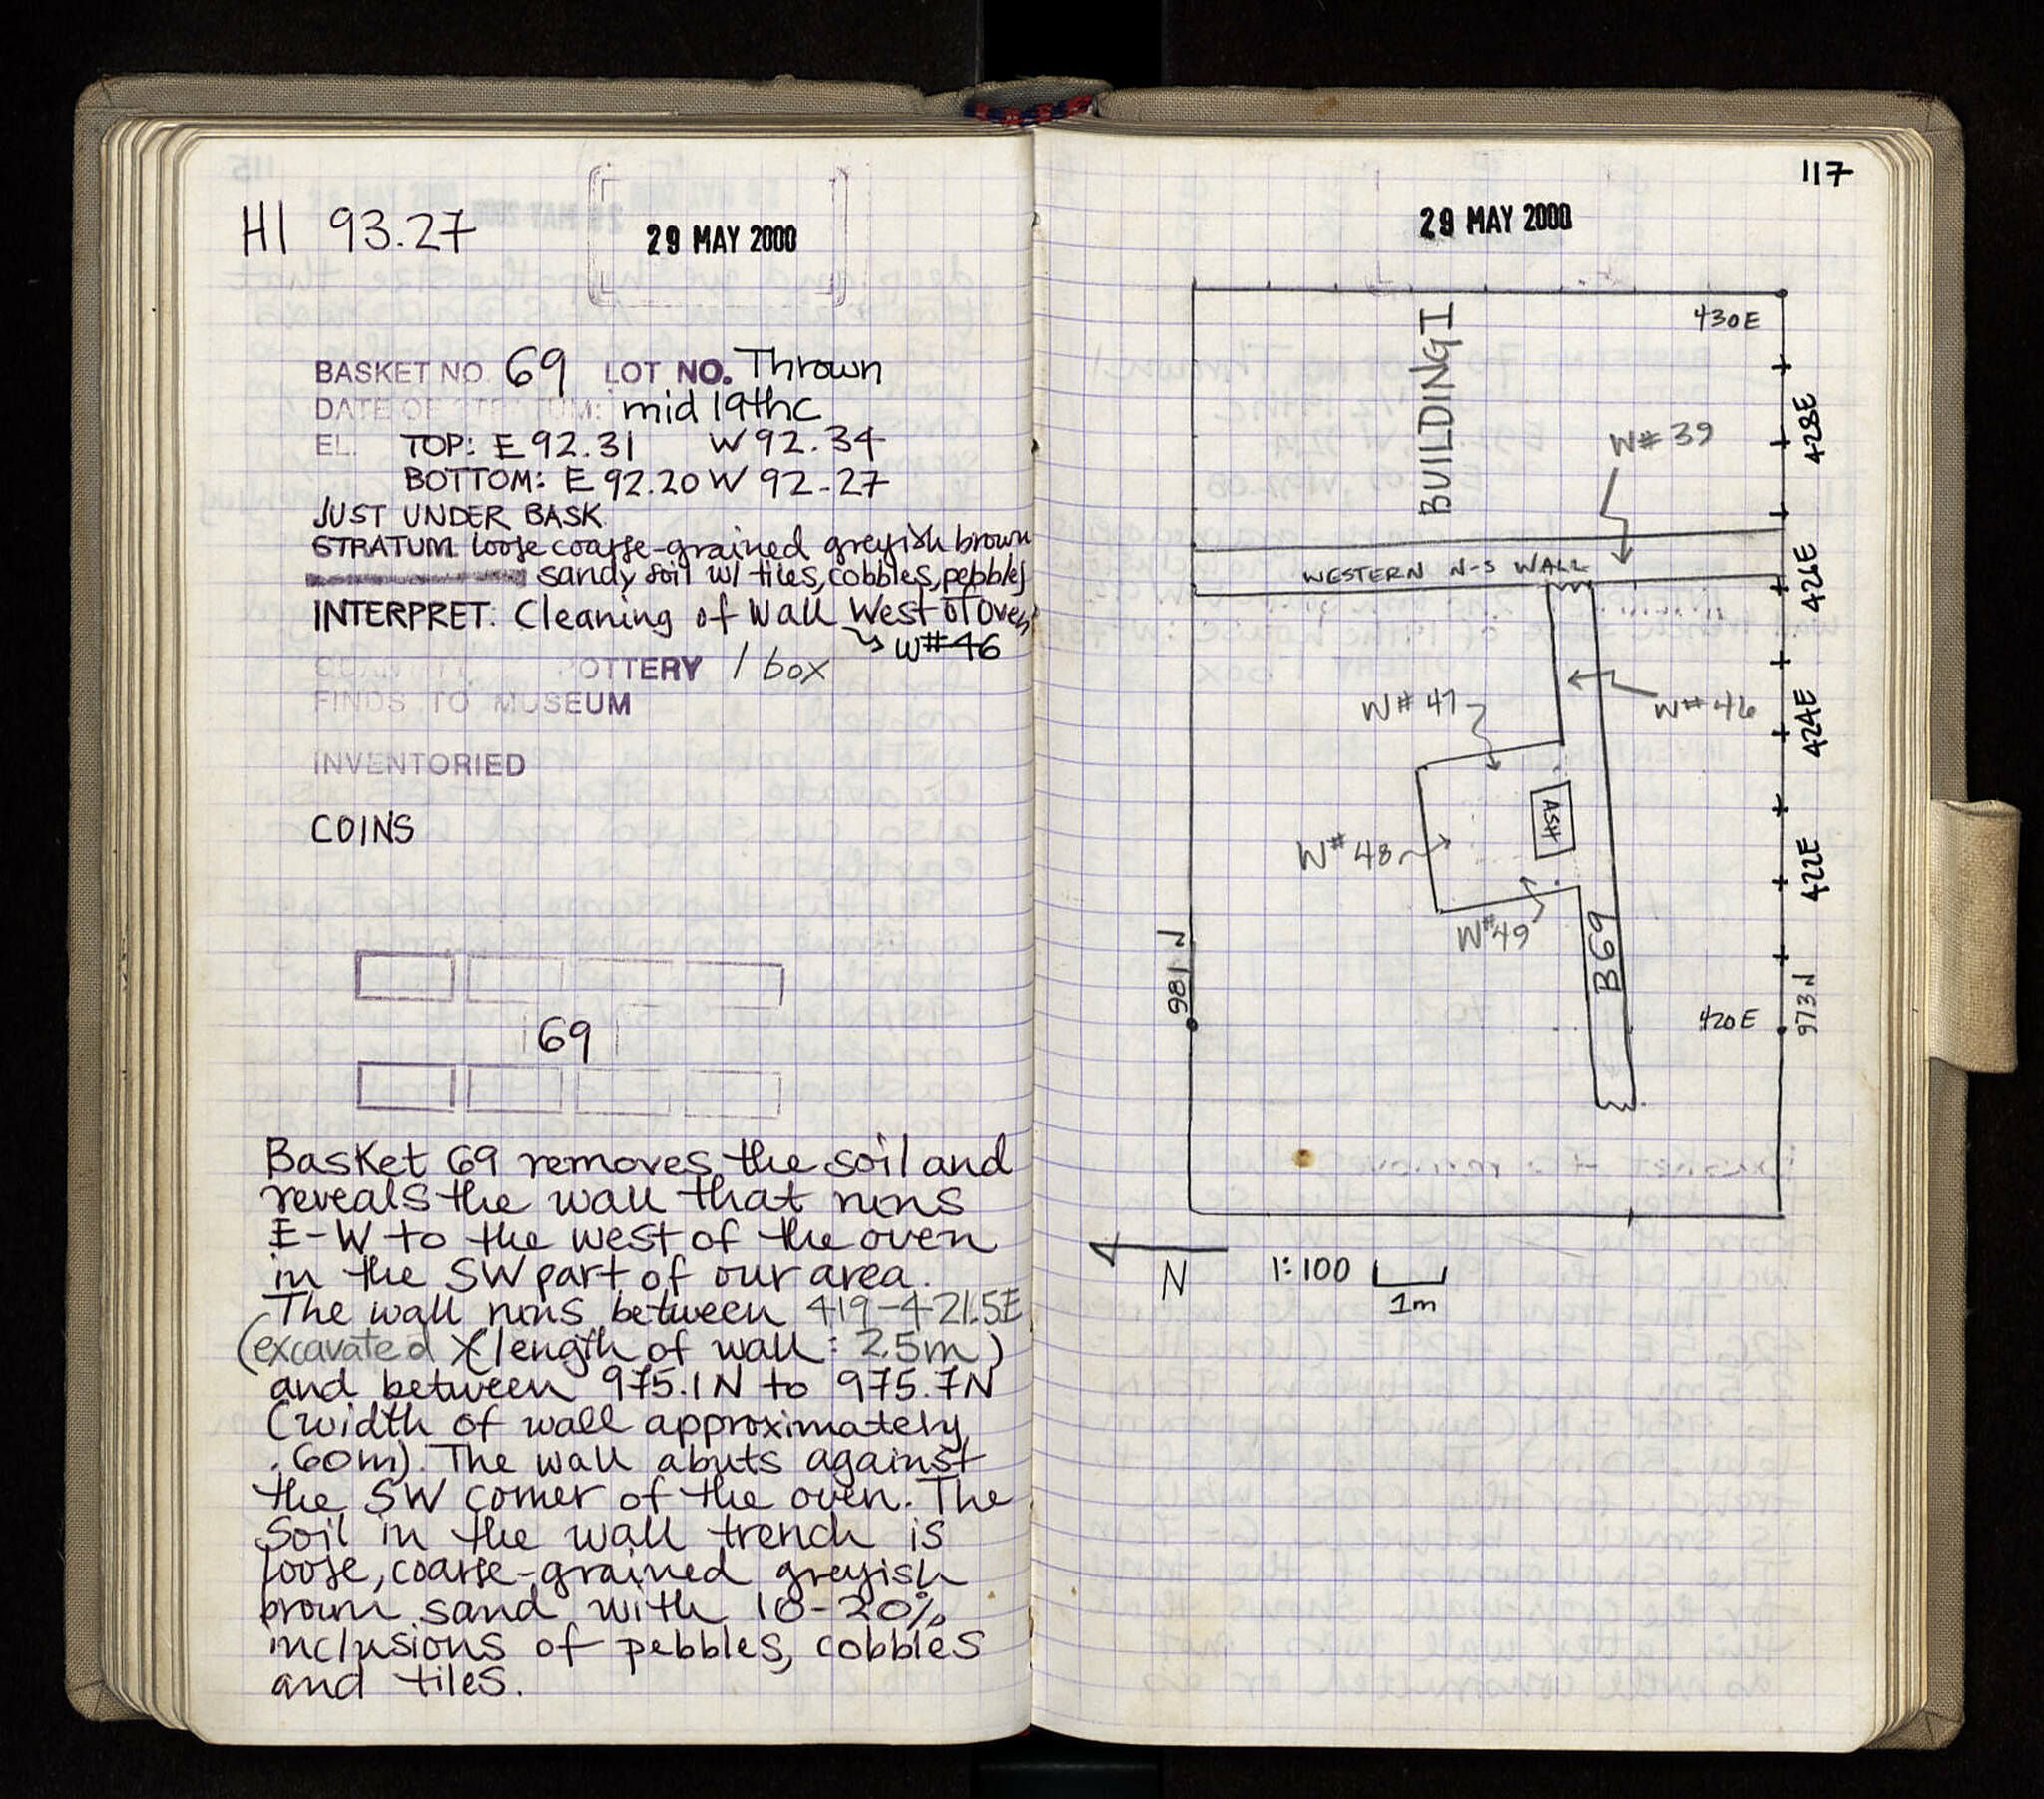 HI 93.27
29 MAY 2000
BASKET NO. 69 LOT NO. Thrown
DATE OF STRATUM: mid 19thc
EL. TOP: E 92.31 W 92.34
BOTTOM: E 92.20 W 92.27
JUST UNDER BASK
STRATUM loose coarse-grained greyish brown
sandy soil w/ tiles, cobbles, pebbles
INTERPRET: Cleaning of Wall West of Oven
W#46
QUANTITY POTTERY 1 box
FINDS TO MUSEUM
INVENTORIED
COINS
69
Basket 69 removes the soil and
reveals the wall that runs
E-W to the west of the oven
in the SW part of our area.
The wall runs between 419-421.5E
(excavated length of wall: 2.5m)
and between 975.1N to 975.7N
(width of wall approximately
.60m). The wall abuts against
the SW corner of the oven. The
soil in the wall trench is
loose, coarse-grained greyish
brown sand with 10-20%
inclusions of pebbles, cobbles
and tiles.
117
29 MAY 2000
430E
BUILDING I
428E
W#39
WESTERN N-S WALL
426E
W#47
W#46
424E
ASH
W#48
422E
W#49
B69
981 N
420E
973 N
N
1:100
1m